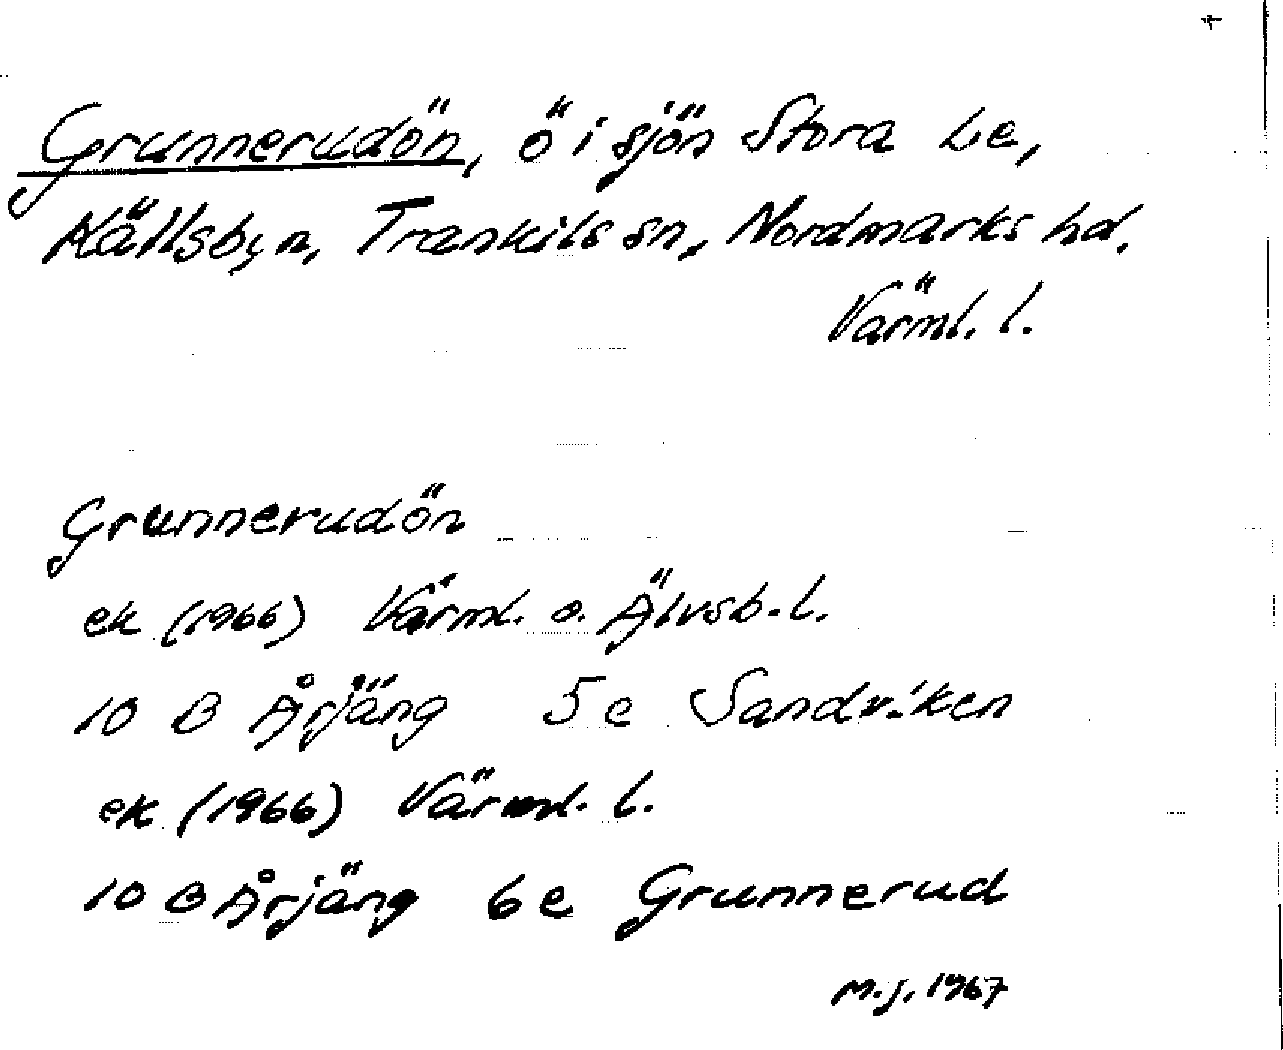 Grunnerudön, ö i sjön Stora Le,
Källsbyn, Trankils sn, Nordmarks hd.
Värml. l.
Grunnerudön
ek (1966) Värml. o. Älvsb. l.
10 B Årjäng 5e Sandviken
ek (1966) Värml. l.
10 B Årjäng 6e Grunnerud
M.J. 1967